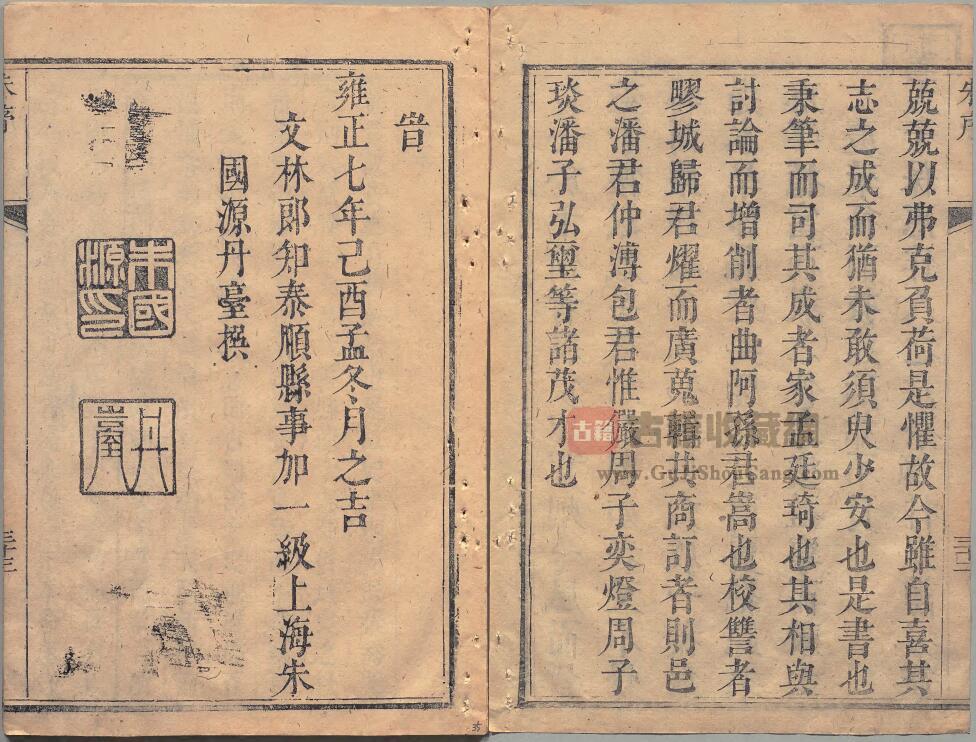 兢兢以弗克負荷是懼故今雖自喜其
志之成而猶未敢須臾少安也是書也
秉筆而司其成者家孟廷琦也其相與
討論而增削者曲阿孫君嵩也校讐者
膠城歸君燿而廣蒐輯共商訂者則邑
之潘君仲溥包君惟嚴周子奕燈周子
琰潘子弘璽等諸茂才也
旹
雍正七年己酉孟冬月之吉
文林郎知泰順縣事加一級上海朱
國源丹臺撰
朱國源印
丹臺
古籍收藏網
www.GuJiShouCang.com